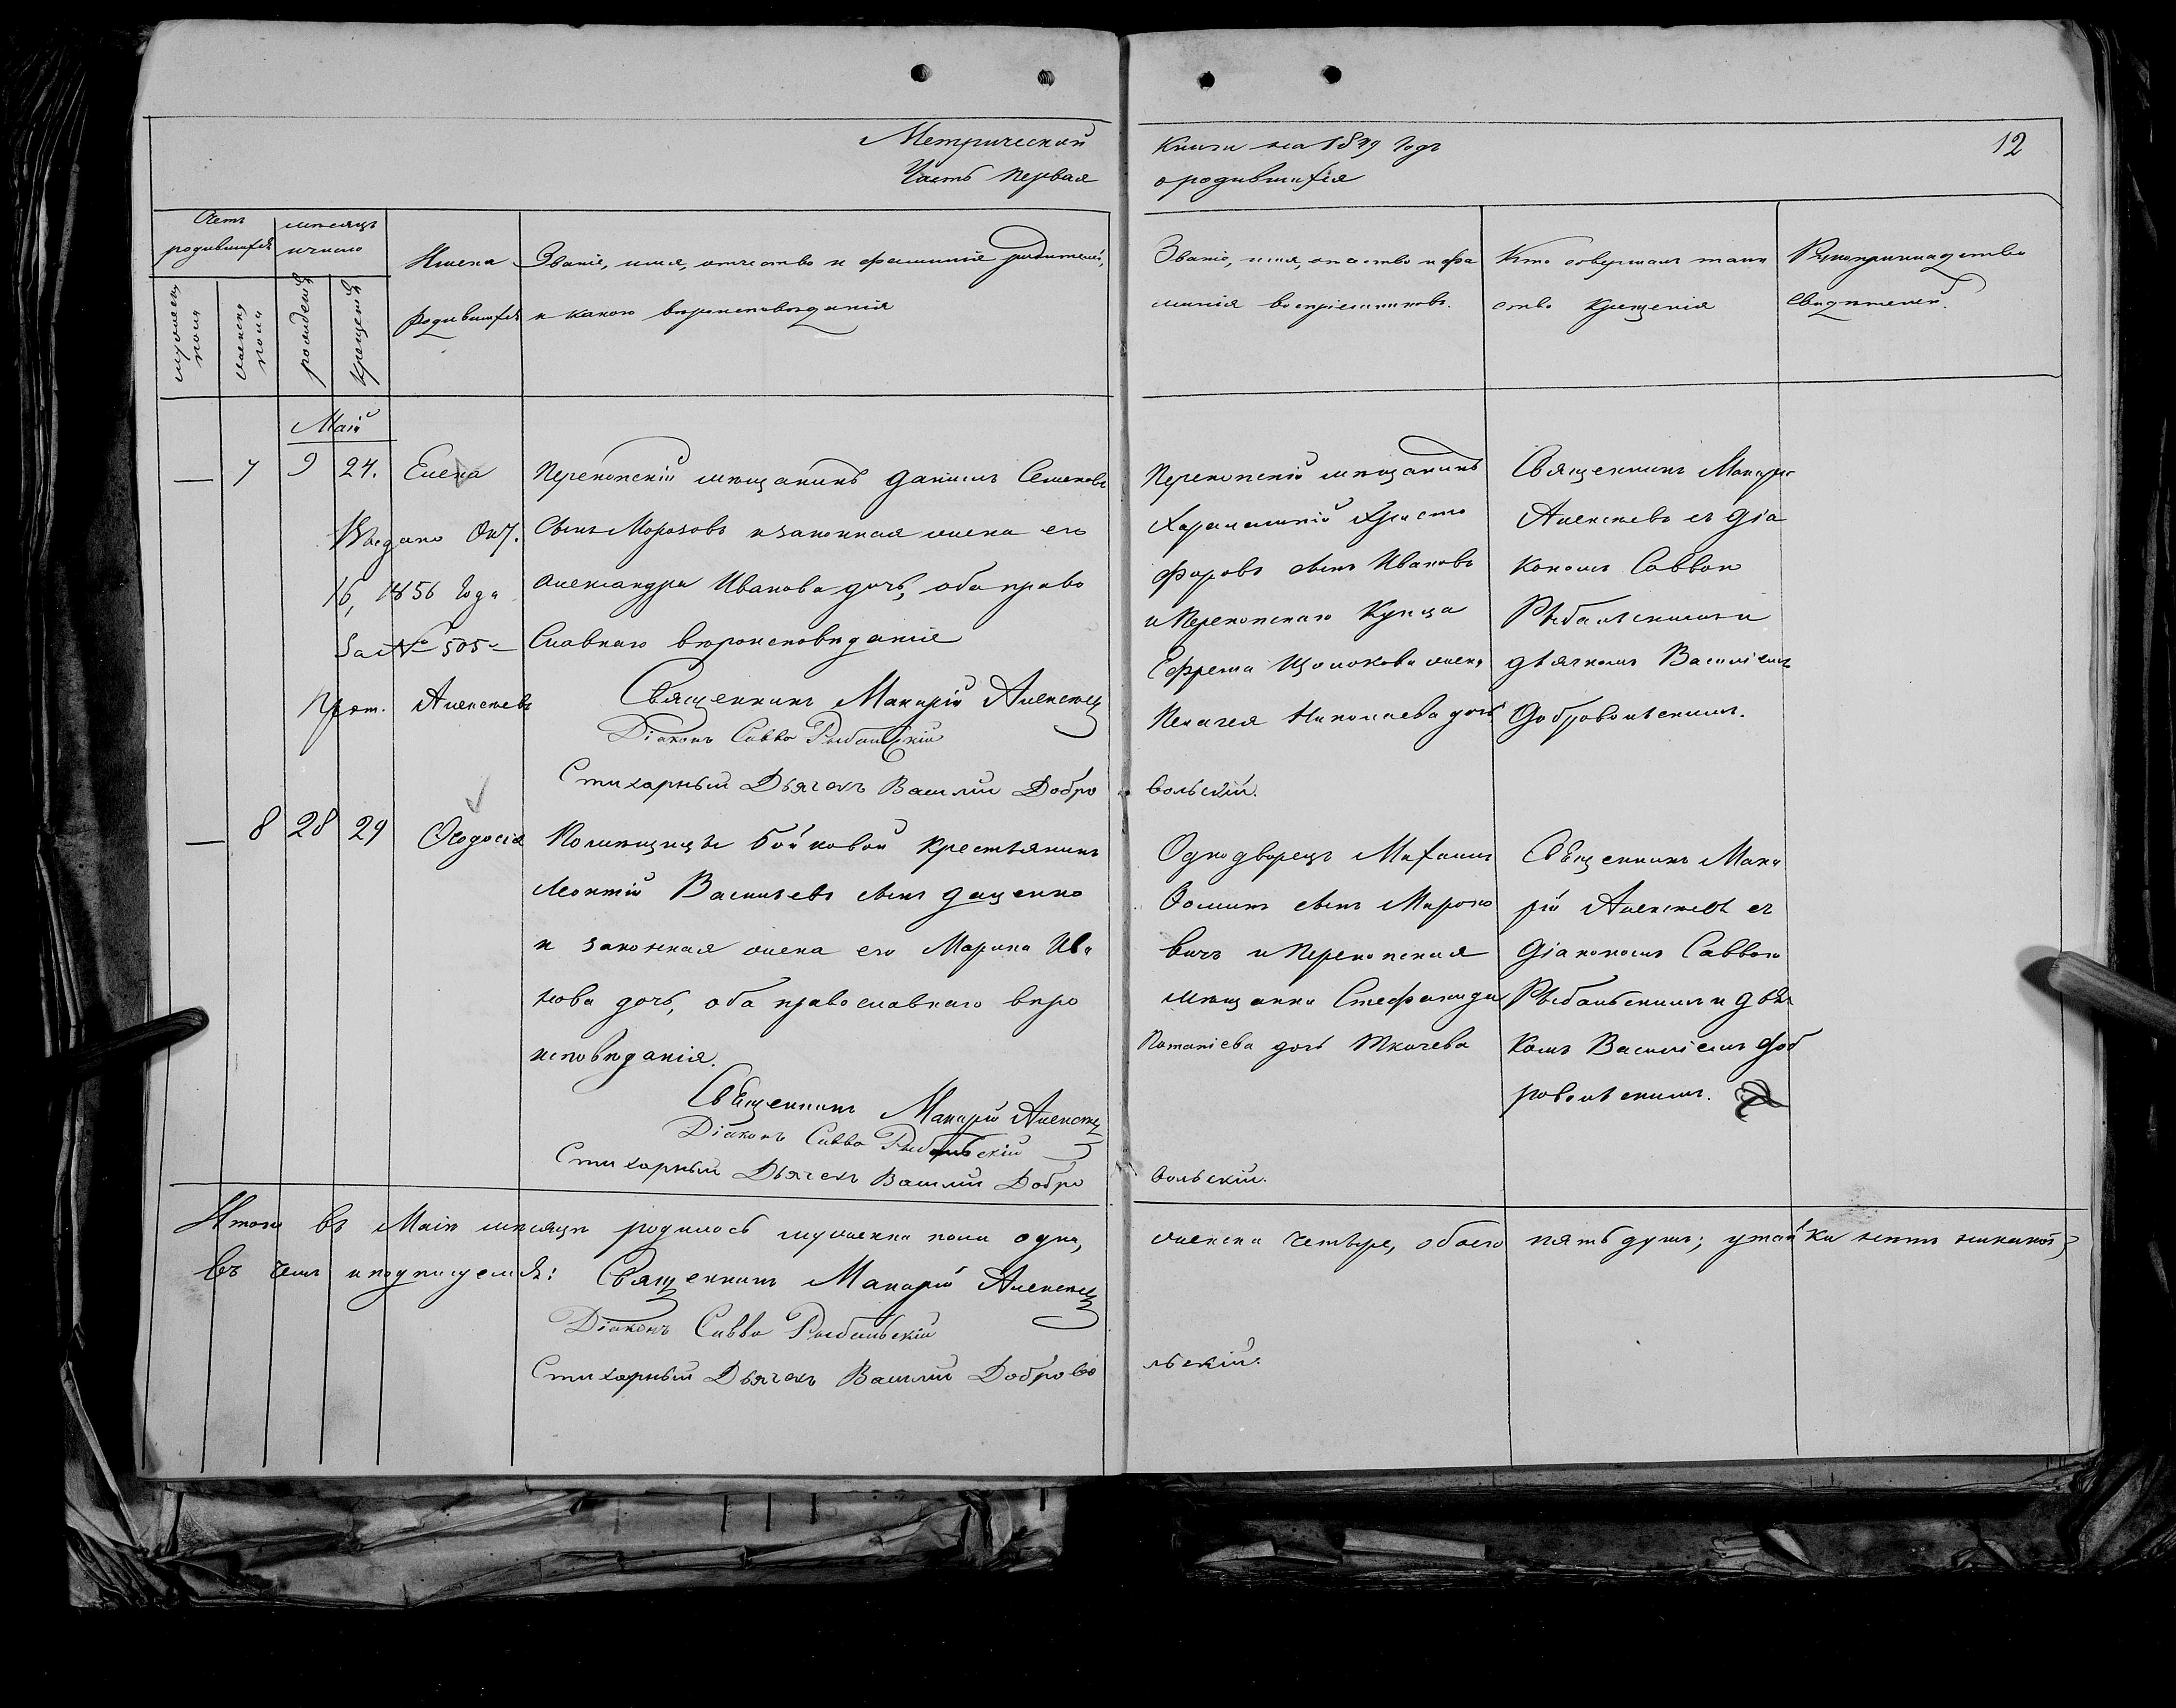 Метрической
Часть первая
Книги на 1849 годъ
о родившихся
12
Счетъ родившихся
мѣсяцъ и число
мужеска пола
женска пола
рожденія
крещенія
Имена
родившихся
Званіе, имя, отчество и фамилія родителей,
и какого вѣроисповѣданія
Званіе, имя, отчество и фа
милія воспріемниковъ.
Кто совершалъ таин
ство крещенія
Рукоприкладство
свидѣтелей.
Маій
— 7 9 24. Елена
Перекопскій мѣщанинъ Даніилъ Семеновъ
сынъ Морозовъ и законная жена его
Александра Иванова дочь, оба право
славнаго вѣроисповѣданія
Священникъ Макарій Алексѣевъ
Діаконъ Савва Рыбальскій
Стихарный Дьячекъ Василій Добро
вольскій.
Выдано Окт.
16, 1856 года
За № 505
Прот. Алексѣевъ
Перекопскій мѣщанинъ
Харалампій Христо
форовъ сынъ Ивановъ
и Перекопскаго Купца
Ефрема Щолокова жена
Пелагея Николаева дочь
Священникъ Макарій
Алексѣевъ съ Діа
кономъ Саввою
Рыбальскимъ и
дьячкомъ Василіемъ
Добровольскимъ.
— 8 28 29 Ѳеодосія
Помѣщицы Бойковой крестьянинъ
Леонтій Васильевъ сынъ Даценко
и законная жена его Марина Ива
нова дочь, оба православнаго вѣро
исповѣданія.
Священникъ Макарій Алексѣевъ
Діаконъ Савва Рыбальскій
Стихарный Дьячекъ Василій Добро
вольскій.
Однодворецъ Михаилъ
Ѳоминъ сынъ Мироно
вичъ и Перекопская
мѣщанка Стефанида
Потапіева дочь Ткачева
Священникъ Мака
рій Алексѣевъ съ
Діакономъ Саввою
Рыбальскимъ и дьяч
комъ Василіемъ Доб
ровольскимъ.
Итого въ Маіѣ мѣсяцѣ родилось мужеска пола одна,
женска четыре, обоего пять душъ; утайки нѣтъ никакой;
въ чемъ и подписуемся: Священникъ Макарій Алексѣевъ
Діаконъ Савва Рыбальскій
Стихарный Дьячекъ Василій Доброво
льскій.